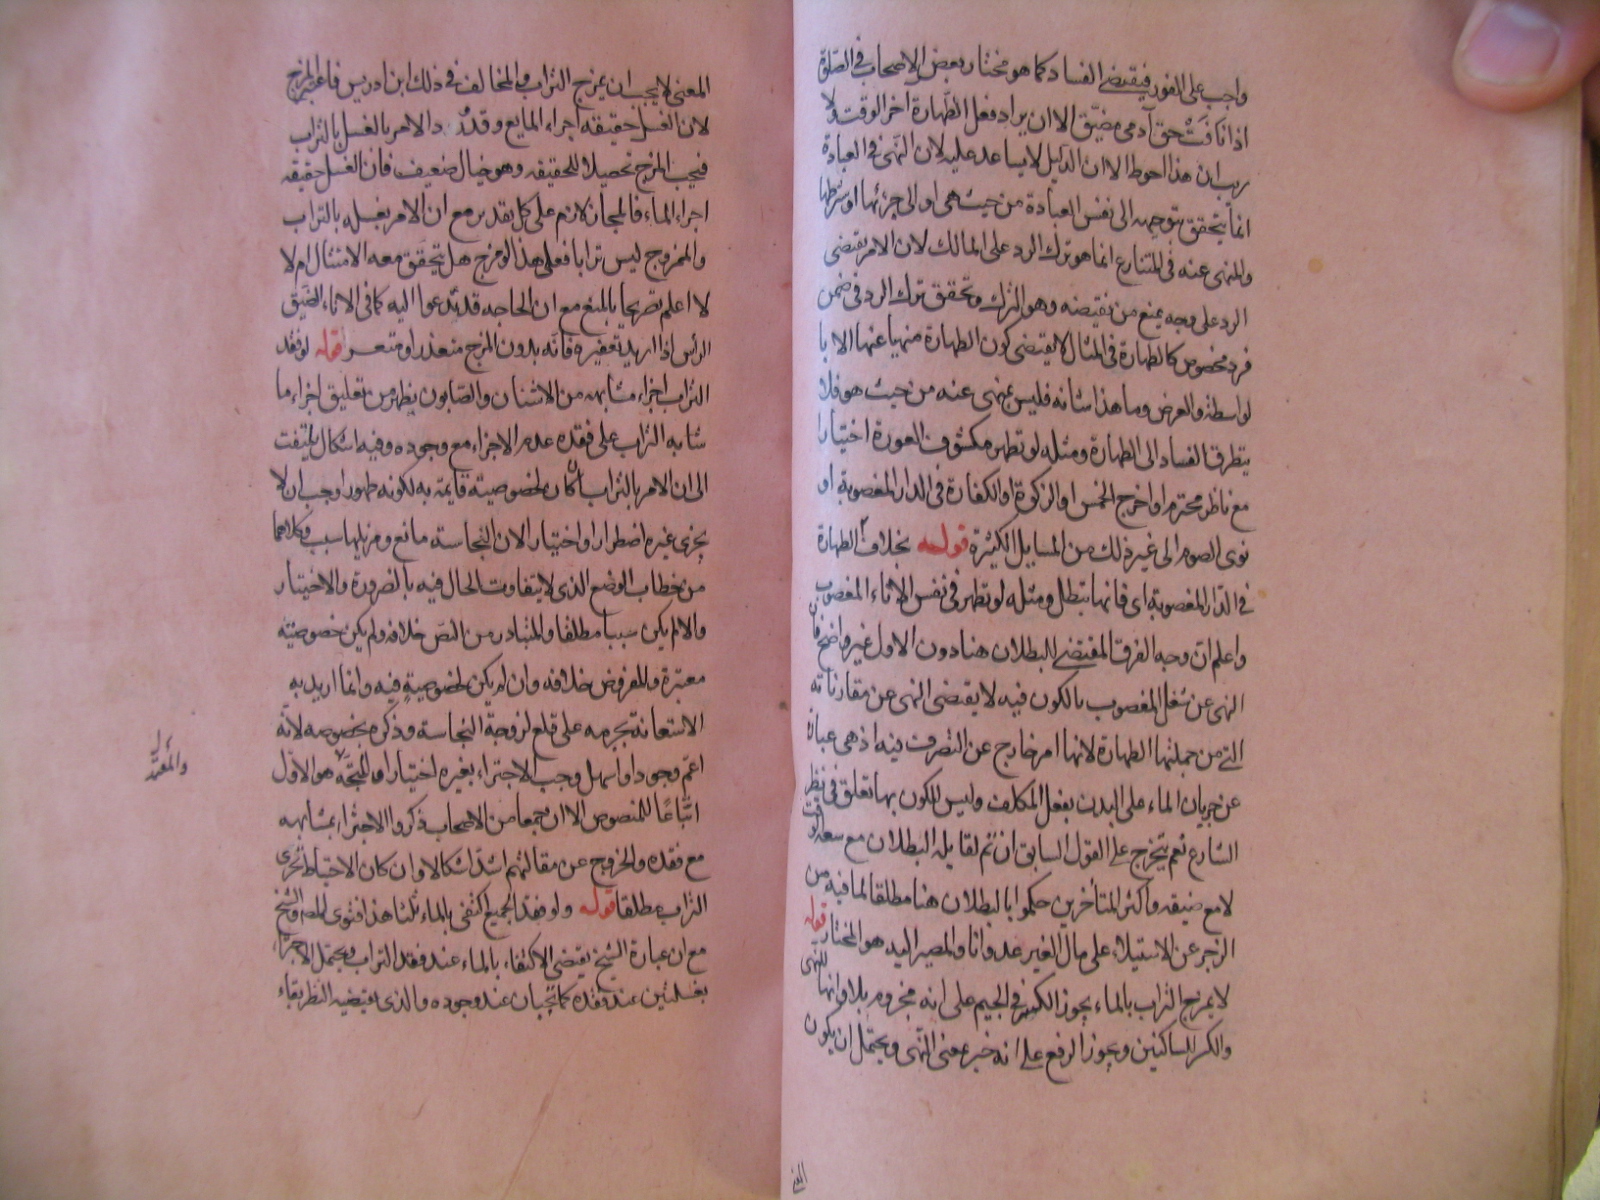 واجب على الفور فيقتضى الفساد كما هو مختار بعض الاصحاب فى الصلوة
اذا نافت حق آدمى مضيّق الا ان يراد فعل الطهارة آخر الوقت ولا
ريب ان هذا احوط الا ان الدليل لا يساعد عليه لان النهى فى العبادة
انما يتحقق بتوجهه الى نفس العبادة من حيث هى او الى جزئها او شرطها
والمنهى عنه فى المتنازع انما هو ترك الرد على المالك لان الامر يقتضى
الرد على وجه يمنع من نقيضه وهو الترك وتحقق ترك الرد فى ضمن
فرد مخصوص كالطهارة فى المثال لا يقتضى كون الطهارة منهيا عنها الا با
لواسطة والعرض وما هذا شانه فليس بمنهى عنه من حيث هو فلا
يتطرق الفساد الى الطهارة ومثله لو تطهر مكشوف العورة اختيارا
مع ناظر محترم او اخرج الخمس او الزكوة او الكفارة فى الدار المغصوبة او
نوى الصوم الى غير ذلك من المسايل الكثيرة قوله بخلاف الطهارة
فى الدار المغصوبة اى فانها تبطل ومثله لو تطهر فى نفس الاناء المغصوب
واعلم انّ وجه الفرق المقتضى للبطلان هنا دون الاول غير واضح فان
النهى عن شغل المغصوب بالكون فيه لا يقتضى النهى عن مقارناته
التى من جملتها الطهارة لانها امر خارج عن التصرف فيه اذ هى عبارة
عن جريان الماء على البدن بفعل المكلف وليس للكون بها تعلق فى نظر
الشارع نعم يتخرج على القول السابق ان تم لقايله البطلان مع سعة الوقت
لا مع ضيقه واكثر المتأخرين حكموا بالبطلان هنا مطلقا لما فيه من
الزجر عن الاستيلاء على مال الغير عدوانا والمصير اليه هو المختار قوله
لا يمزج التراب بالماء يجوز الكسر فى الجيم على انه مجزوم بلا وانها للنهى
والكسر للساكنين ويجوز الرفع على انه خبر بمعنى النهى ويحتمل ان يكون
المعنى
المعنى لا يجب ان يمزج التراب والمخالف فى ذلك ابن ادريس فاعتبر المزج
لان الغسل حقيقته اجراء المايع وقد ورد الامر بالغسل بالتراب
فيجب المزج تحصيلا للحقيقه وهو خيال ضعيف فان الغسل حقيقه
اجراء الماء فالمجاز لازم على كل تقدير مع ان الامر بغسله بالتراب
والممزوج ليس ترابا فعلى هذا لو مزج هل يتحقق معه الامتثال ام لا
لا اعلم تصريحا بالمنع مع ان الحاجه قد تدعوا اليه كما فى الاناء الضيق
الرأس اذا اريد تعفيره فانّه بدون المزج متعذر او متعسر قوله لو فقد
التراب اجزاء مشابهه من الاشنان والصابون يظهر من تعليق اجزاء ما
شابه التراب على فقده عدم الاجزاء مع وجوده وفيه اشكال يلتفت
الى ان الامر بالتراب ان كان لخصوصيته قايمة به لكونه طهورا وجب ان لا
يجزى غيره اضطرارا واختيارا لان النجاسة مانع ومزيلها سبب وكلاهما
من خطاب الوضع الذى لا يتفاوت الحال فيه بالضرورة والاختيار
والا لم يكن سببا مطلقا والمتبادر من النص خلافه ولم يكن خصوصيته
معتبرة والمفروض خلافه وان لم يكن لخصوصيةٍ فيه وانما اريد به
الاستعانة بجرمه على قلع لزوجة النجاسة وذكره بخصوصه لانّه
اعمّ وجودا واسهل وجب الاجتزاء بغيره اختيارا والمتجه هو الاوّل
والمعتمد
اتباعًا للمنصوص الا ان جمعا من الاصحاب ذكروا الاجتزاء بمشابهه
مع فقده والخروج عن مقالتهم اشدّ اشكالا وان كان الاحتياط تحرى
التراب مطلقا قوله ولو فقد الجميع اكتفى بالماء ثلثا هذا فتوى المص والشيخ
مع ان عبارة الشيخ يقتضى الاكتفاء بالماء عند فقد التراب ويحتمل الاجتزاء
بغسلتين عند فقده كما تجبان عند وجوده والذى يقتضيه النظر بقاء